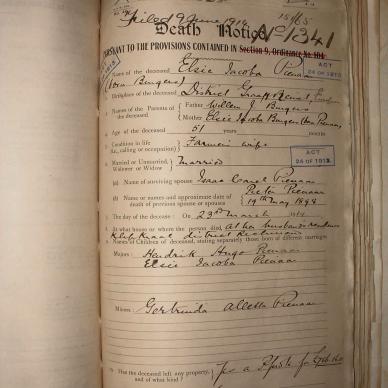 Filed 9 June 1914.
Death Notice No 1341
PURSUANT TO THE PROVISIONS CONTAINED IN Section 9, Ordinance No. 104
ACT 24 OF 1913
Name of the deceased Elsie Jacoba Pienaar
(born Burger)
Birthplace of the deceased District Graaff Reinet
Names of the Parents of the deceased
Father Willem J Burger
Mother Elsie Jacoba Burger (born Pienaar)
Age of the deceased 51 years months
Condition in life (i.e., calling or occupation) Farmer's wife
ACT 24 OF 1913
Married or Unmarried, Widower or Widow Married
(a) Name of surviving spouse Isaac Carel Pienaar
(b) Name or names and approximate date of death of previous spouse or spouses Pieter Pienaar
19th May 1898
The day of the decease: On 23rd March 1914
At what house or where the person died, At her husbands residence
district Richmond
Names of Children of deceased, stating separately those born of different marriages
Majors: Hendrik Hugo Pienaar
Elsie Jacoba Pienaar
Minors: Gertruida Aletta Pienaar
Has the deceased left any property, and of what kind?